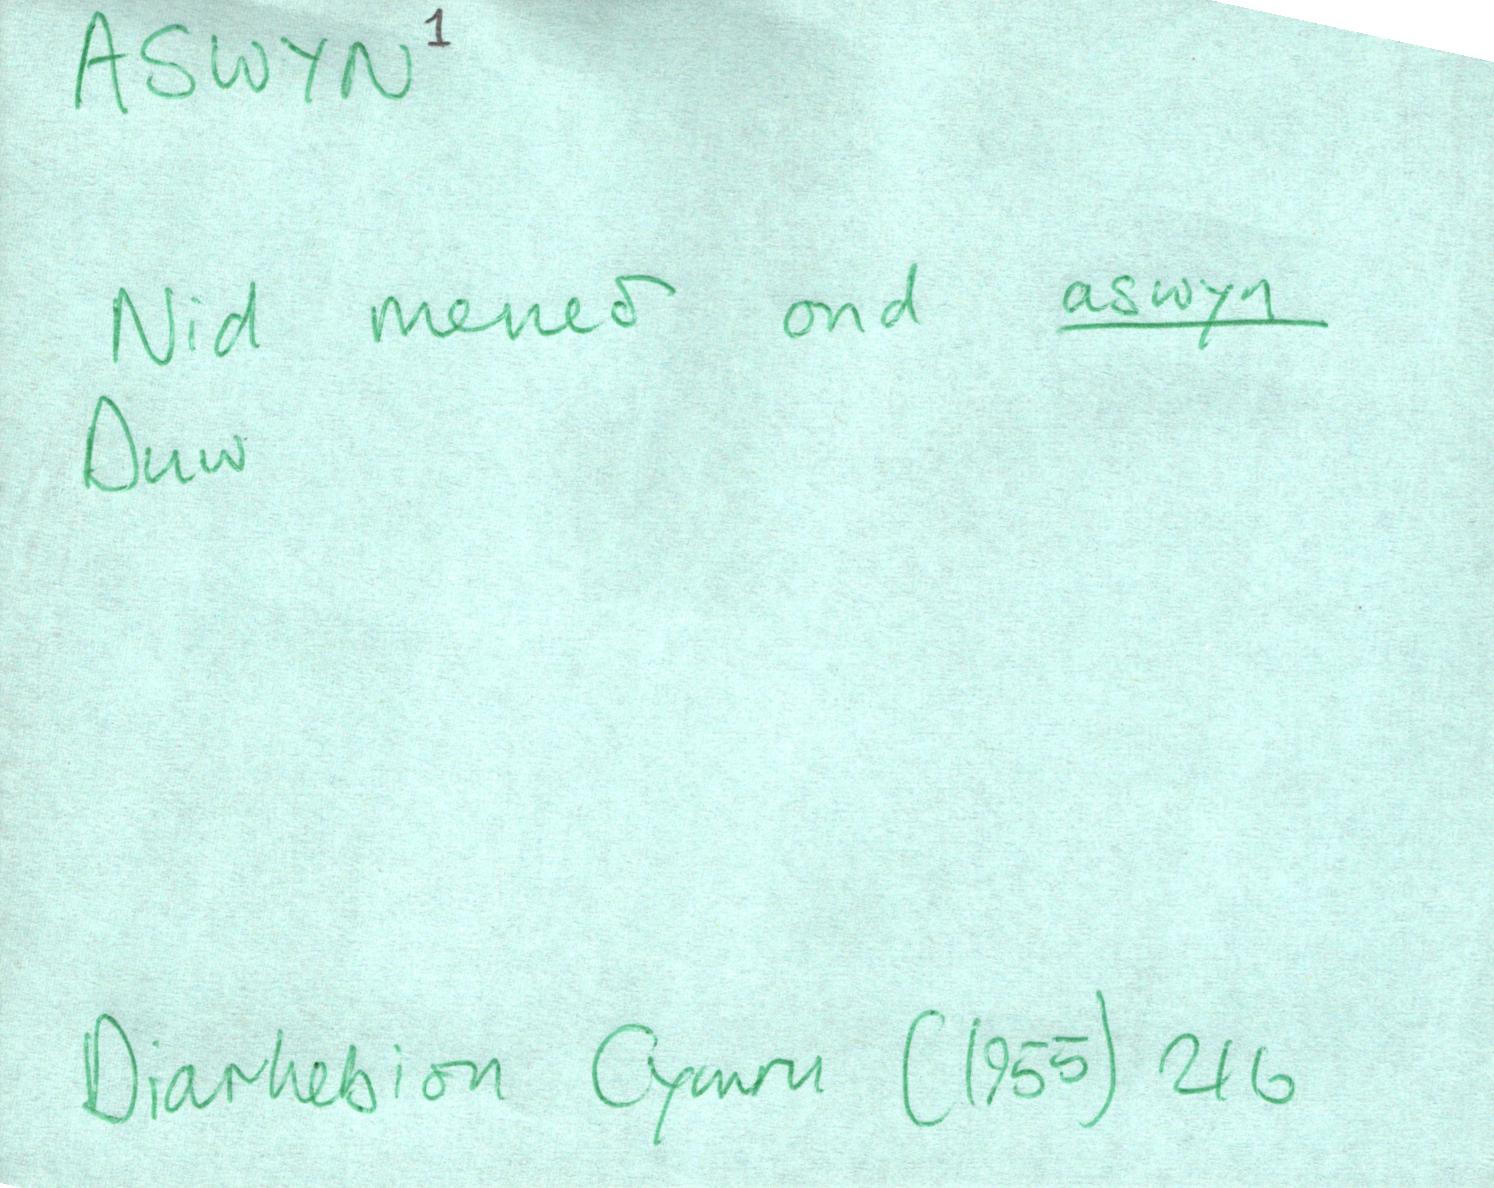 ASWYN¹
Nid meueδ ond aswyn
Duw
Diarhebion Cymru (1955) 216